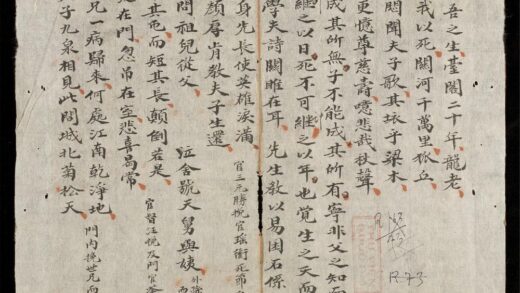 吾之生臺閣二十年龍老
我以死關河千萬里狐丘
聞夫子歌其坏子梁木
更憶尊慈壽噫悲哉杖聲
成其所無子不能成其所有寧非父之知
継之以日死不可継之以年也生之天而
學夫詩關雎在耳 先生教以易困石係
官二元勝挽官瑶衝死節
身先長使英雄淚滿
顏厚肯教夫子生還
問祖兒從父
含號天舅與姨
其而短其長顛倒若是
官督江悅及門官
在門忽吊在室悲喜曷常
兄一病歸來何處江南乾淨地
門內挽世兄而
子九泉相見此間城北菊松天
R-73